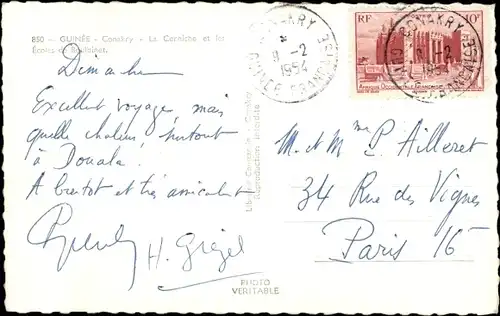 850 - GUINÉE - Conakry - La Corniche et les
Écoles de Boulbinet
Dimanche
Excellent voyage, mais
quelle chaleur surtout
à Douala.
A bientôt et très amicalement
H.
Librairie Cartier - Conakry
Reproduction interdite
PHOTO
VERITABLE
CONAKRY
9-2
1954
GUINÉE FRANÇAISE
RF 10F
CONAKRY
1954
GUINÉE FRANÇAISE
M. et Mme P. Ailleret
34 Rue des Vignes
Paris 16e